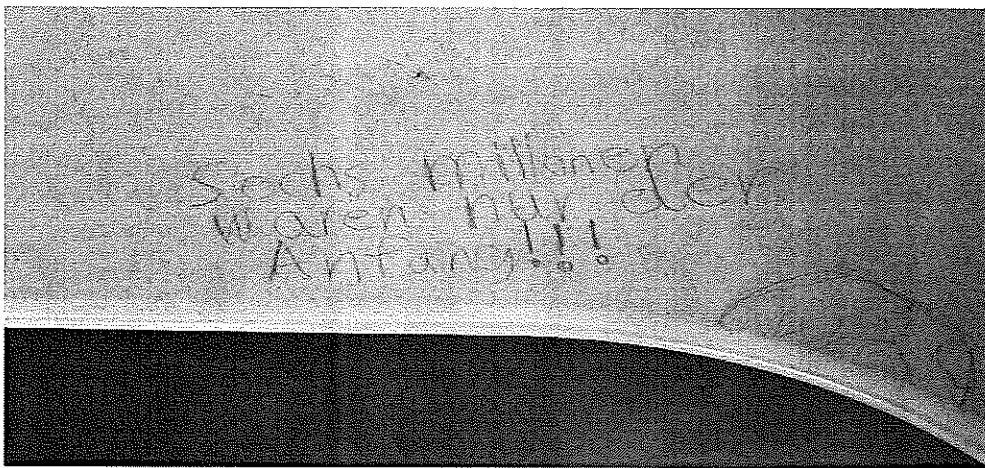 Sechs millionen
waren nur der
Anfang!!!